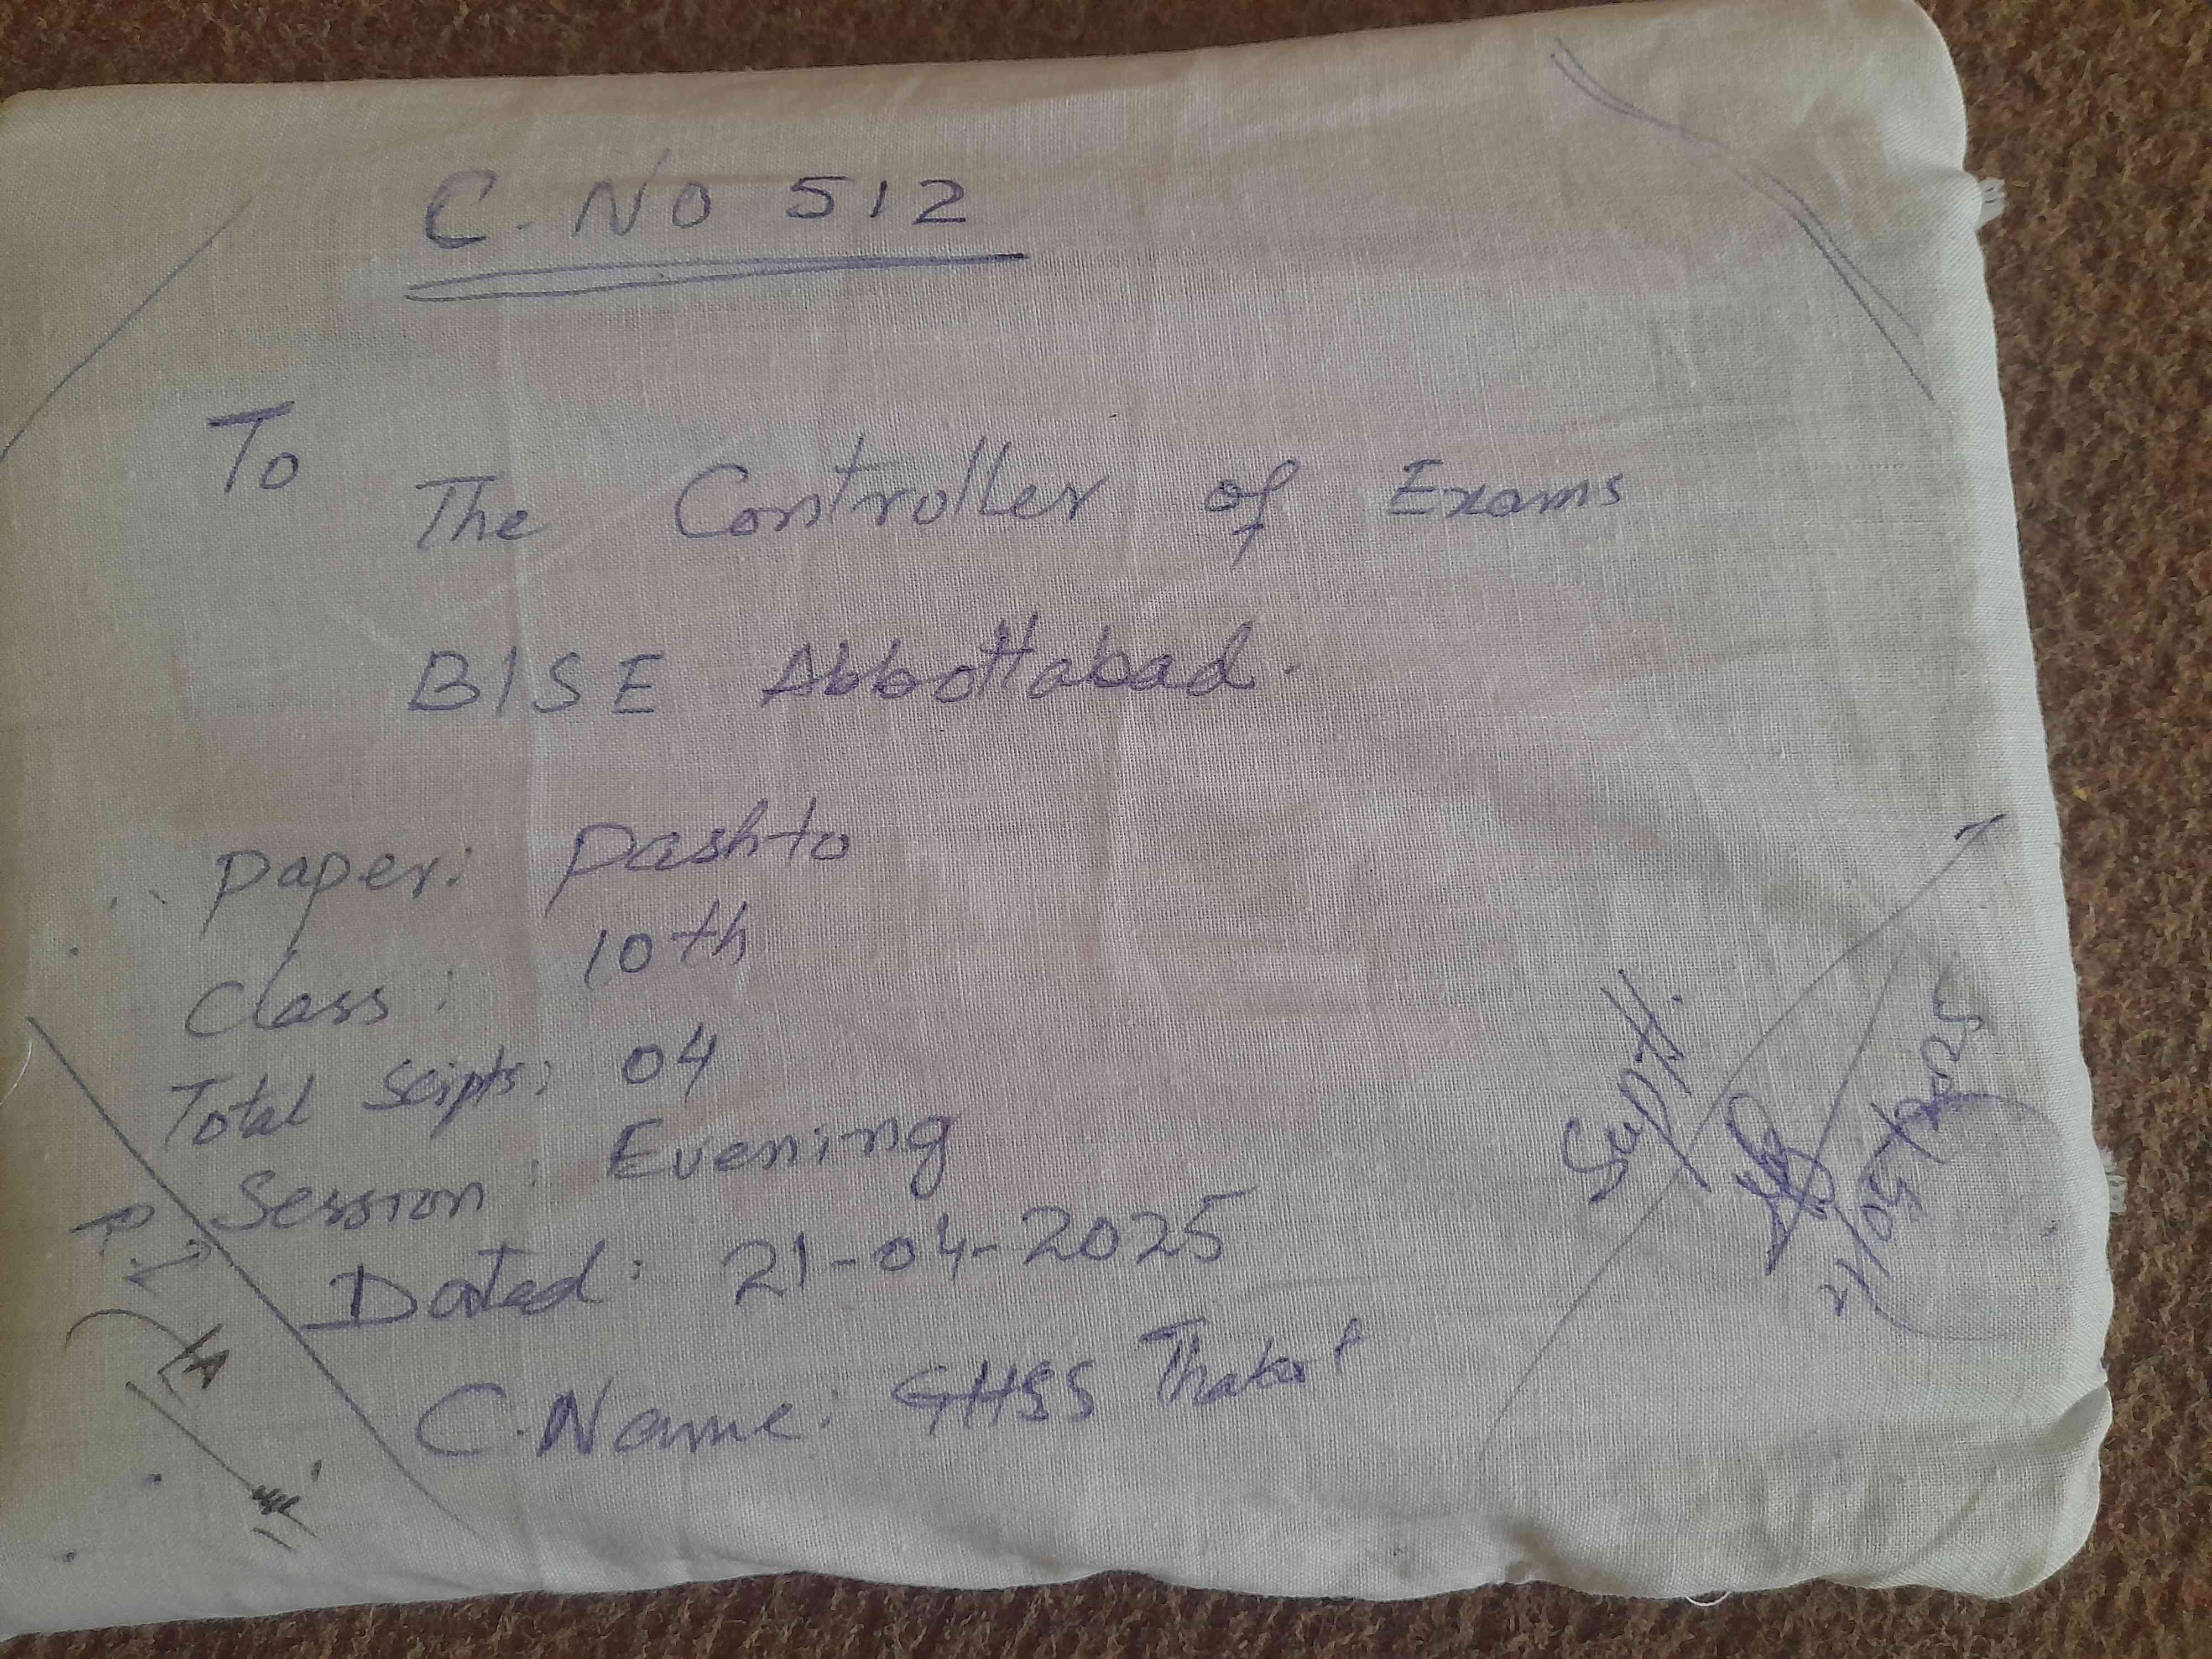 C. NO 512
To
The Controller of Exams
BISE Abbottabad.
Paper: Pashto
Class: 10th
Total Scipts: 04
Session: Evening
Dated: 21-04-2025
C.Name: GHSS Thakot
Supdtt.
21/05/2025